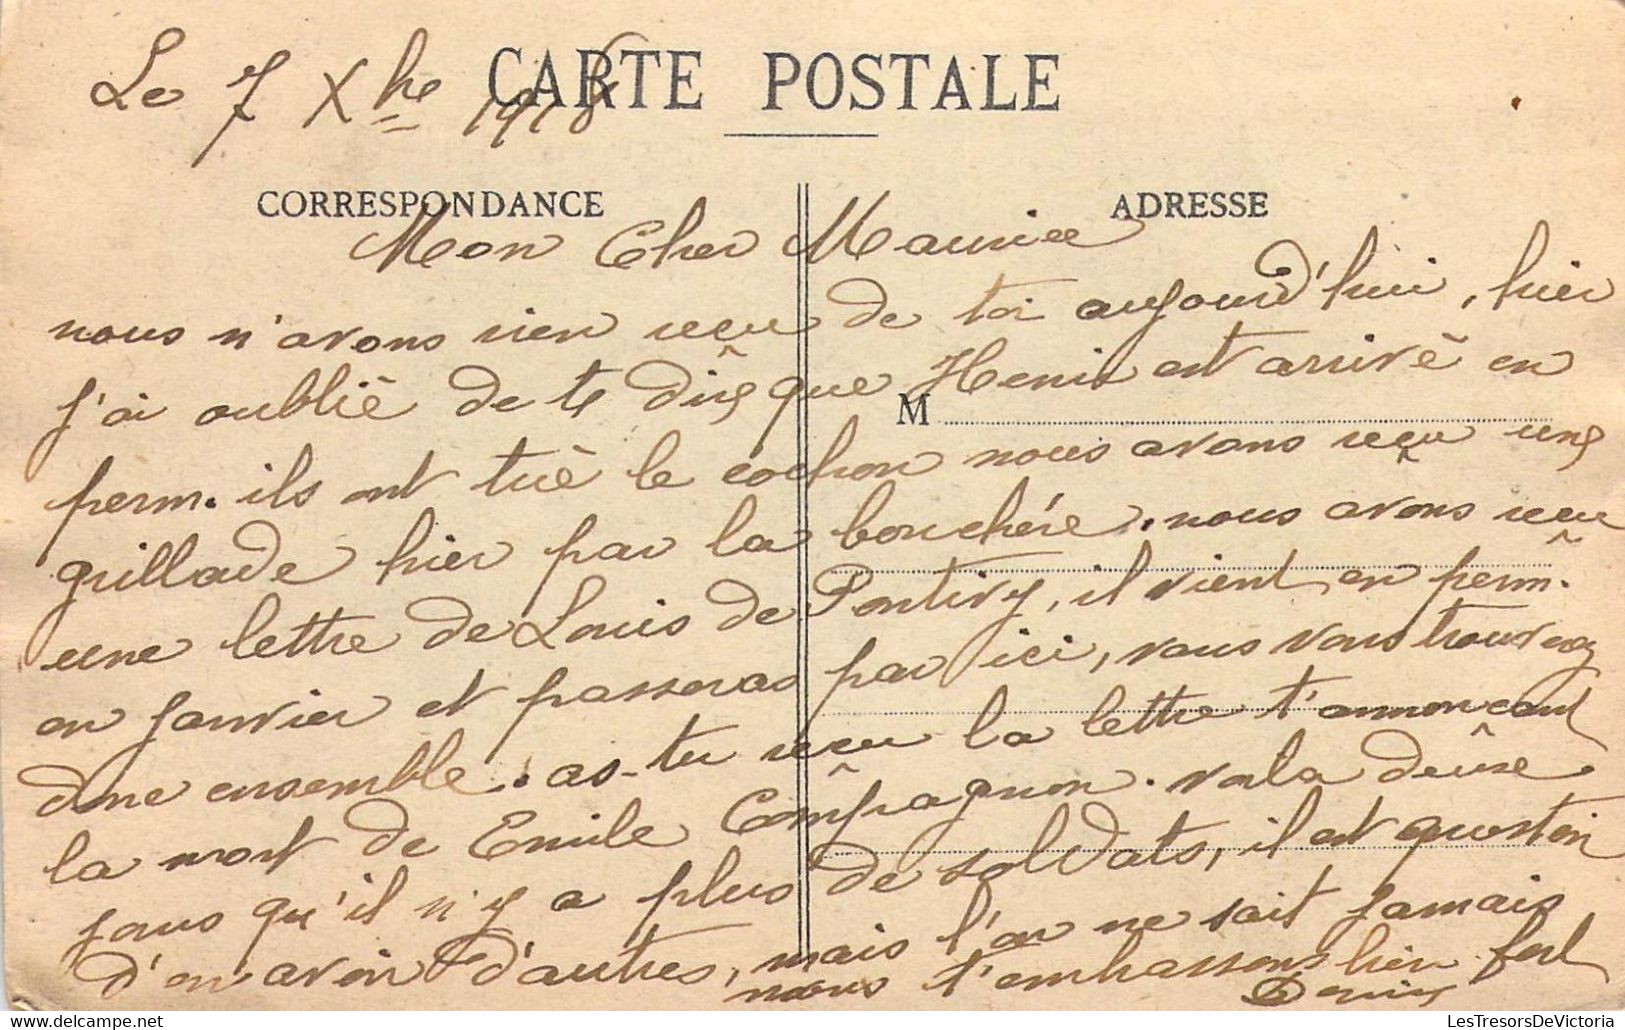 Le 7 Xbre 1918
CARTE POSTALE
CORRESPONDANCE
ADRESSE
Mon Cher Maurice
nous n'avons rien reçu de toi aujourd'hui, hier
j'ai oublié de te dire que est arrivé en
M
perm. ils ont tué le cochon nous avons reçu une
grillade hier par la bouchère. nous avons reçu
une lettre de Louis de Pontivy, il vient en perm.
en janvier et passeras par ici, vous vous trouverez
donc ensemble. as-tu reçu la lettre t'annoncant
la mort de Emile Compagnon. voila deuse
jours qu'il n'y a plus de soldats, il est question
d'en avoir d'autres, mais l'on ne sait jamais
nous t'embrassons bien fort
LesTresorsDeVictoria